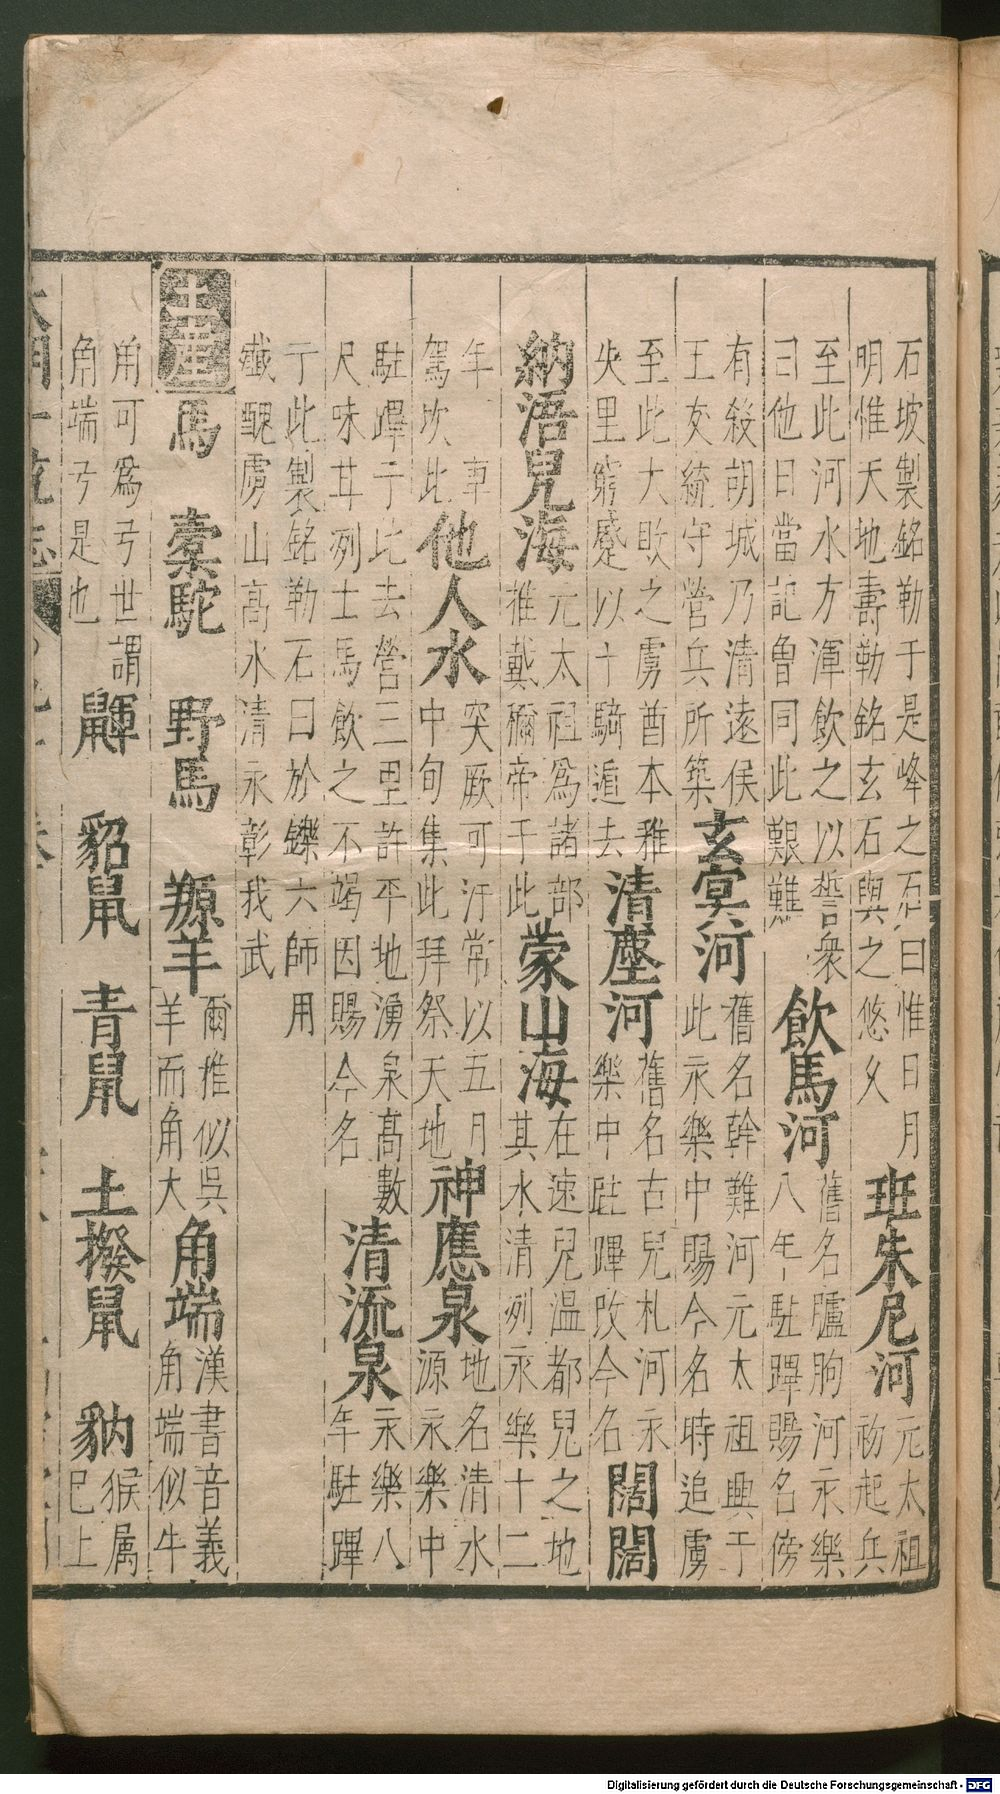 石坡製銘勒于是峰之石曰惟日月
明惟天地壽勒銘玄石與之悠久
班朱尼河
元太祖
初起兵
至此河水方渾飲之以誓衆
曰他日當記魯同此艱難
飲馬河
舊名臚朐河永樂
八年駐蹕賜名傍
有殺胡城乃清遠侯
王友統守營兵所築
玄冥河
舊名幹難河元太祖興于
此永樂中賜今名時追虜
至此大敗之虜酋本雅
失里窮蹙以十騎遁去
清塵河
舊名古兒札河永
樂中駐蹕改今名
闊闊
納浯兒海
元太祖爲諸部
推戴彌帝于此
蒙山海
在速兒温都兒之地
其水清冽永樂十二
年車
駕坎此
他人水
突厥可汗常以五月
中旬集此拜祭天地
神應泉
地名清水
源永樂中
駐蹕于此去營三里許平地湧泉高數
尺味甘冽士馬飲之不竭因賜今名
清流泉
永樂八
年駐蹕
于此製銘勒石曰於鑠六師用
殲醜虜山高水清永彰我武
土産
馬 槖駝 野馬 羱羊
爾雅似吳
羊而角大
角端
漢書音義
角端似牛
角可爲弓世謂
角端弓是也
鼲 貂鼠 青鼠 土撥鼠 豽
猴属
巳上
大明一統志
Digitalisierung gefördert durch die Deutsche Forschungsgemeinschaft - DFG